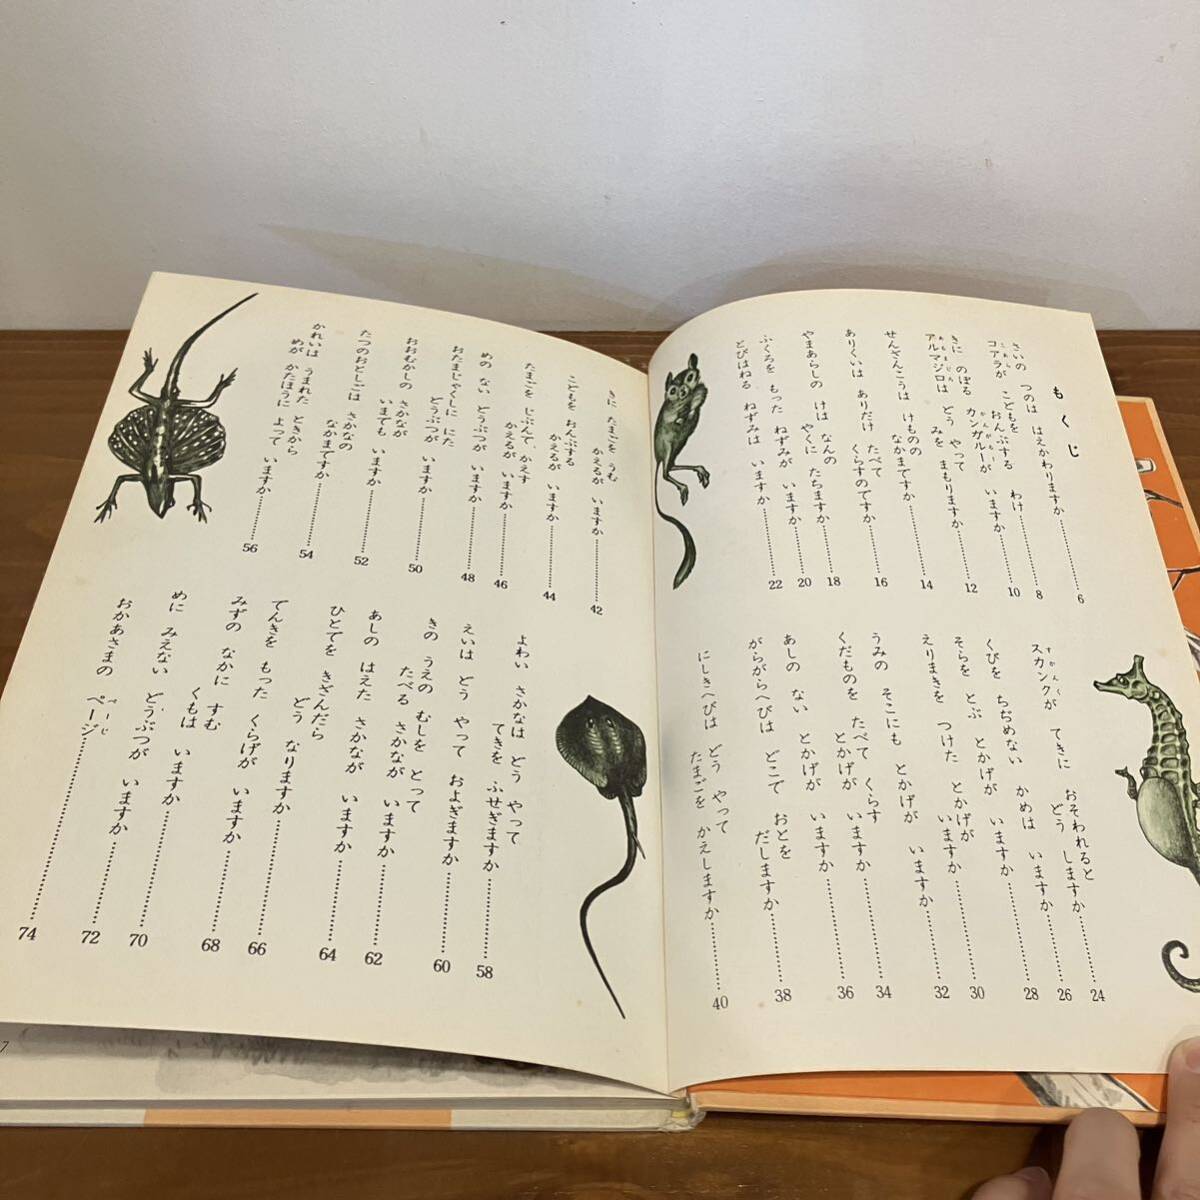 もくじ
さいの つのは はえかわりますか……6
コアラが こどもを おんぶする わけ……8
こあら
きに のぼる カンガルーが いますか……10
かんがるー
アルマジロは どう やって みを まもりますか……12
あるまじろ
せんざんこうは けものの なかまですか……14
ありくいは ありだけ たべて くらすのですか……16
やまあらしの けは なんの やくに たちますか……18
ふくろを もった ねずみが いますか……20
とびはねる ねずみは いますか……22
スカンクが てきに おそわれると どう しますか……24
すかんく
くびを ちぢめない かめは いますか……26
そらを とぶ とかげが いますか……28
えりまきを つけた とかげが いますか……30
うみの そこにも とかげが いますか……32
くだものを たべて くらす とかげが いますか……34
あしの ない とかげが いますか……36
がらがらへびは どこで おとを だしますか……38
にしきへびは どう やって たまごを かえしますか……40
きに たまごを うむ かえるが いますか……42
こどもを おんぶする かえるが いますか……44
たまごを じぶんで かえす かえるが いますか……46
めの ない どうぶつが いますか……48
おたまじゃくしに にた どうぶつが いますか……50
おおむかしの さかなが いまでも いますか……52
たつのおとしごは さかなの なかまですか……54
かれいは うまれた ときから めが かたほうに よって いますか……56
よわい さかなは どう やって てきを ふせぎますか……58
えいは どう やって およぎますか……60
きの うえの むしを とって たべる さかなが いますか……62
あしの はえた さかなが いますか……64
ひとでを きざんだら どう なりますか……66
でんきを もった くらげが いますか……68
みずの なかに すむ くもは いますか……70
めに みえない どうぶつが いますか……72
おかあさまの ページ……74
ぺーじ
7